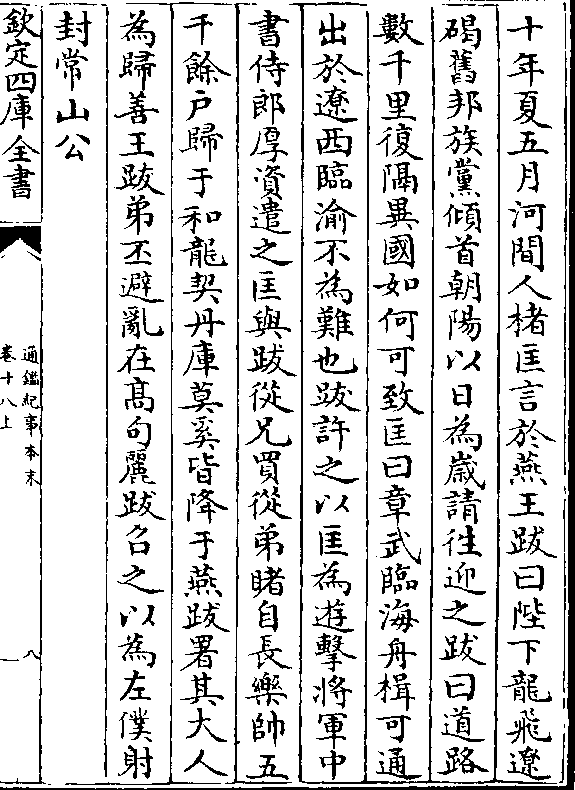 十年夏五月河間人楮匡言於燕王跋曰陛下龍飛遼
碣舊邦族黨傾首朝陽以日為歲請徃迎之跋曰道路
數千里復隔異國如何可致匡曰章武臨海舟楫可通
出於遼西臨渝不為難也跋許之以匡為遊擊將軍中
書侍郎厚資遣之匡與跋從兄買從弟睹自長樂帥五
千餘户歸于和龍契丹庫莫奚皆降于燕跋署其大人
為歸善王跋弟丕避亂在髙句麗跋召之以為左僕射
封常山公
欽定四庫全書
通鑑紀事本末
卷十八上
八